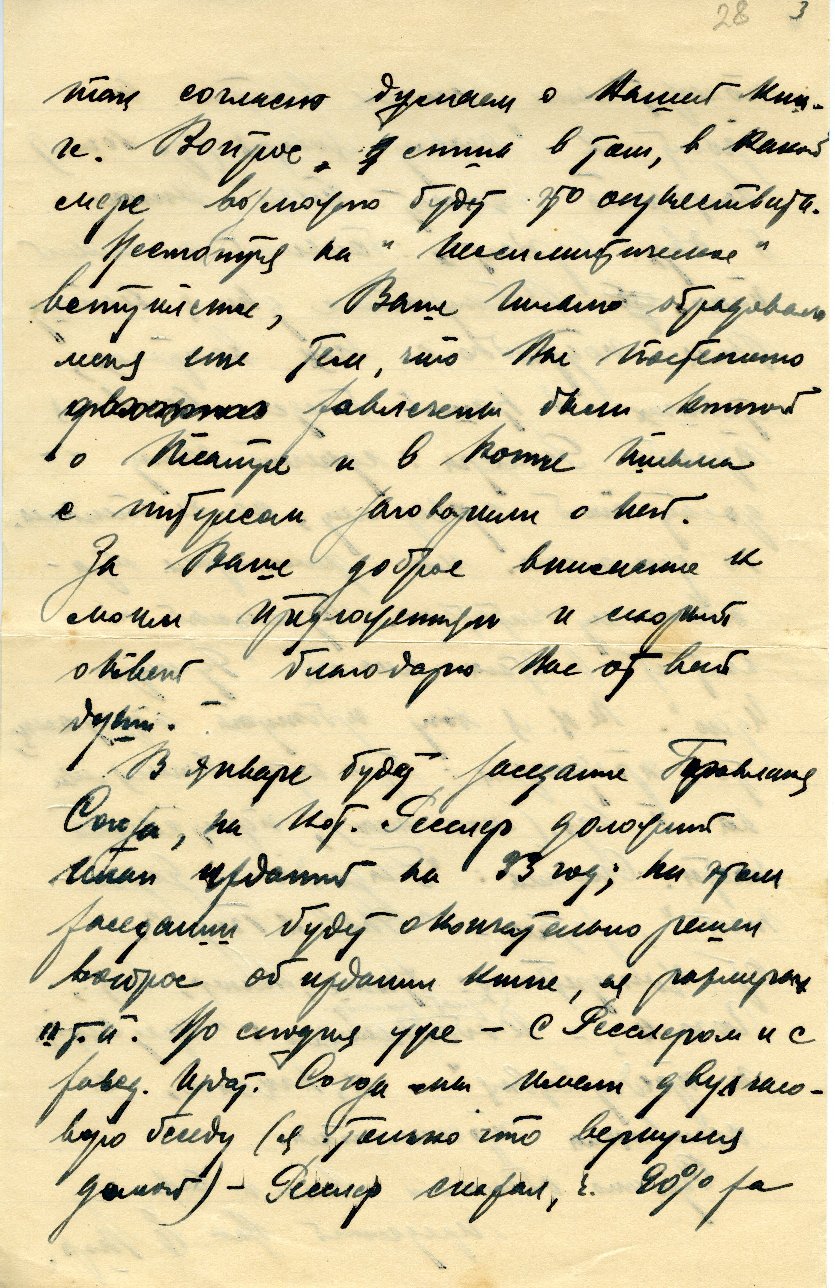 28 3
так согласно думаем о нашей кни-
ге. Вопрос, в том, в какой
мере возможно будет это осуществить.
Несмотря на "пессимистическое"
вступление, Ваше письмо обрадовало
меня еще тем, что Вы постепенно
завлечены были книгой
о театре и в конце письма
с интересом заговорили о ней.
За Ваше доброе внимание к
моим предложениям и скорый
ответ благодарю Вас от всей
души.
В январе будет заседание Правления
Союза, на кот. Гесслер доложит
план изданий на 93 год; на этом
заседании будет окончательно решен
вопрос об издании книги, ея размерах
и т.п. Но сегодня уже – с Гесслером и с
завед. Издат. Союза мы имели двухчасо-
вую беседу (я только что вернулся
домой) – Гесслер сказал, ч. 90% за